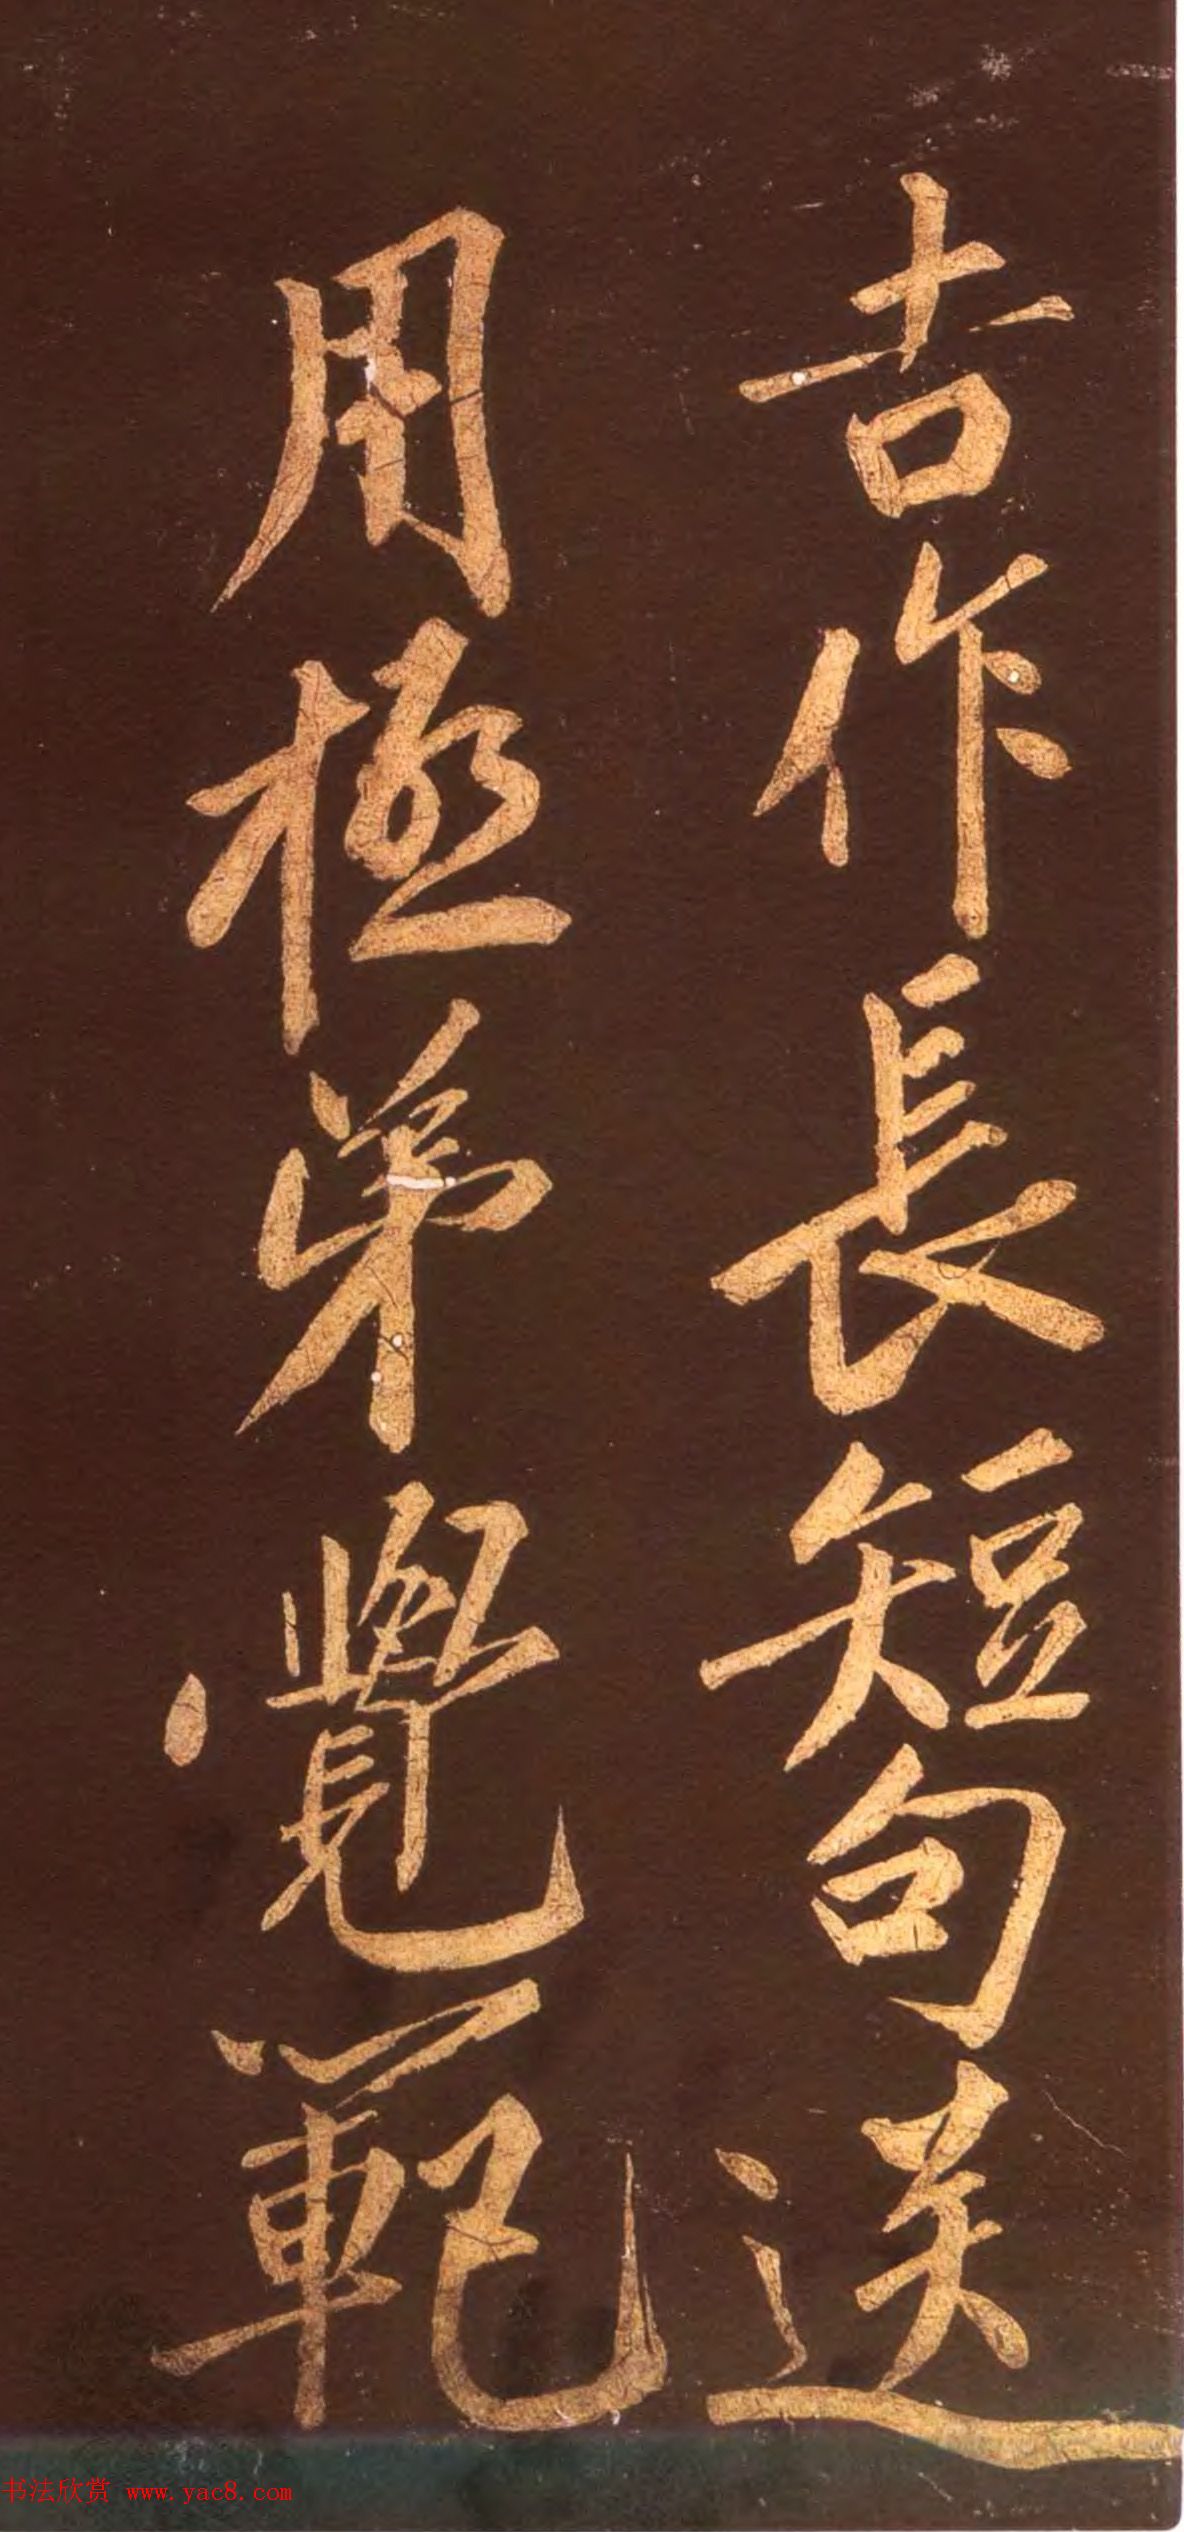 吉作長短句送
用極弟覺範
书法欣赏 www.yac8.com